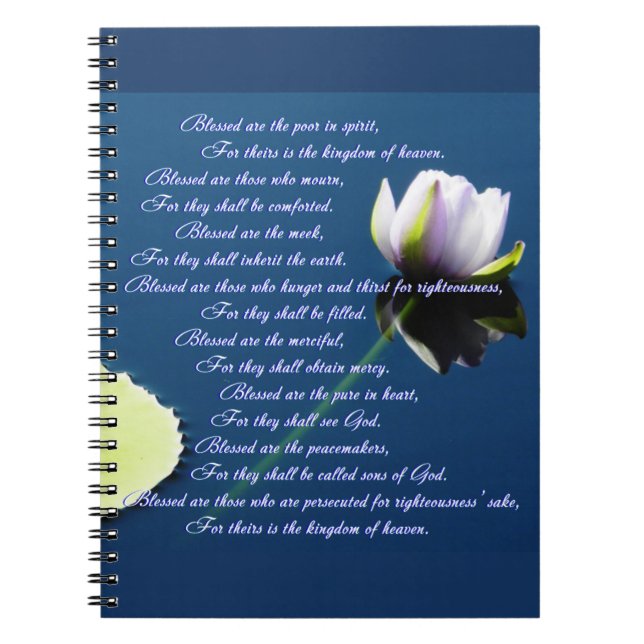 Blessed are the poor in spirit,
For theirs is the kingdom of heaven.
Blessed are those who mourn,
For they shall be comforted.
Blessed are the meek,
For they shall inherit the earth.
Blessed are those who hunger and thirst for righteousness,
For they shall be filled.
Blessed are the merciful,
For they shall obtain mercy.
Blessed are the pure in heart,
For they shall see God.
Blessed are the peacemakers,
For they shall be called sons of God.
Blessed are those who are persecuted for righteousness' sake,
For theirs is the kingdom of heaven.